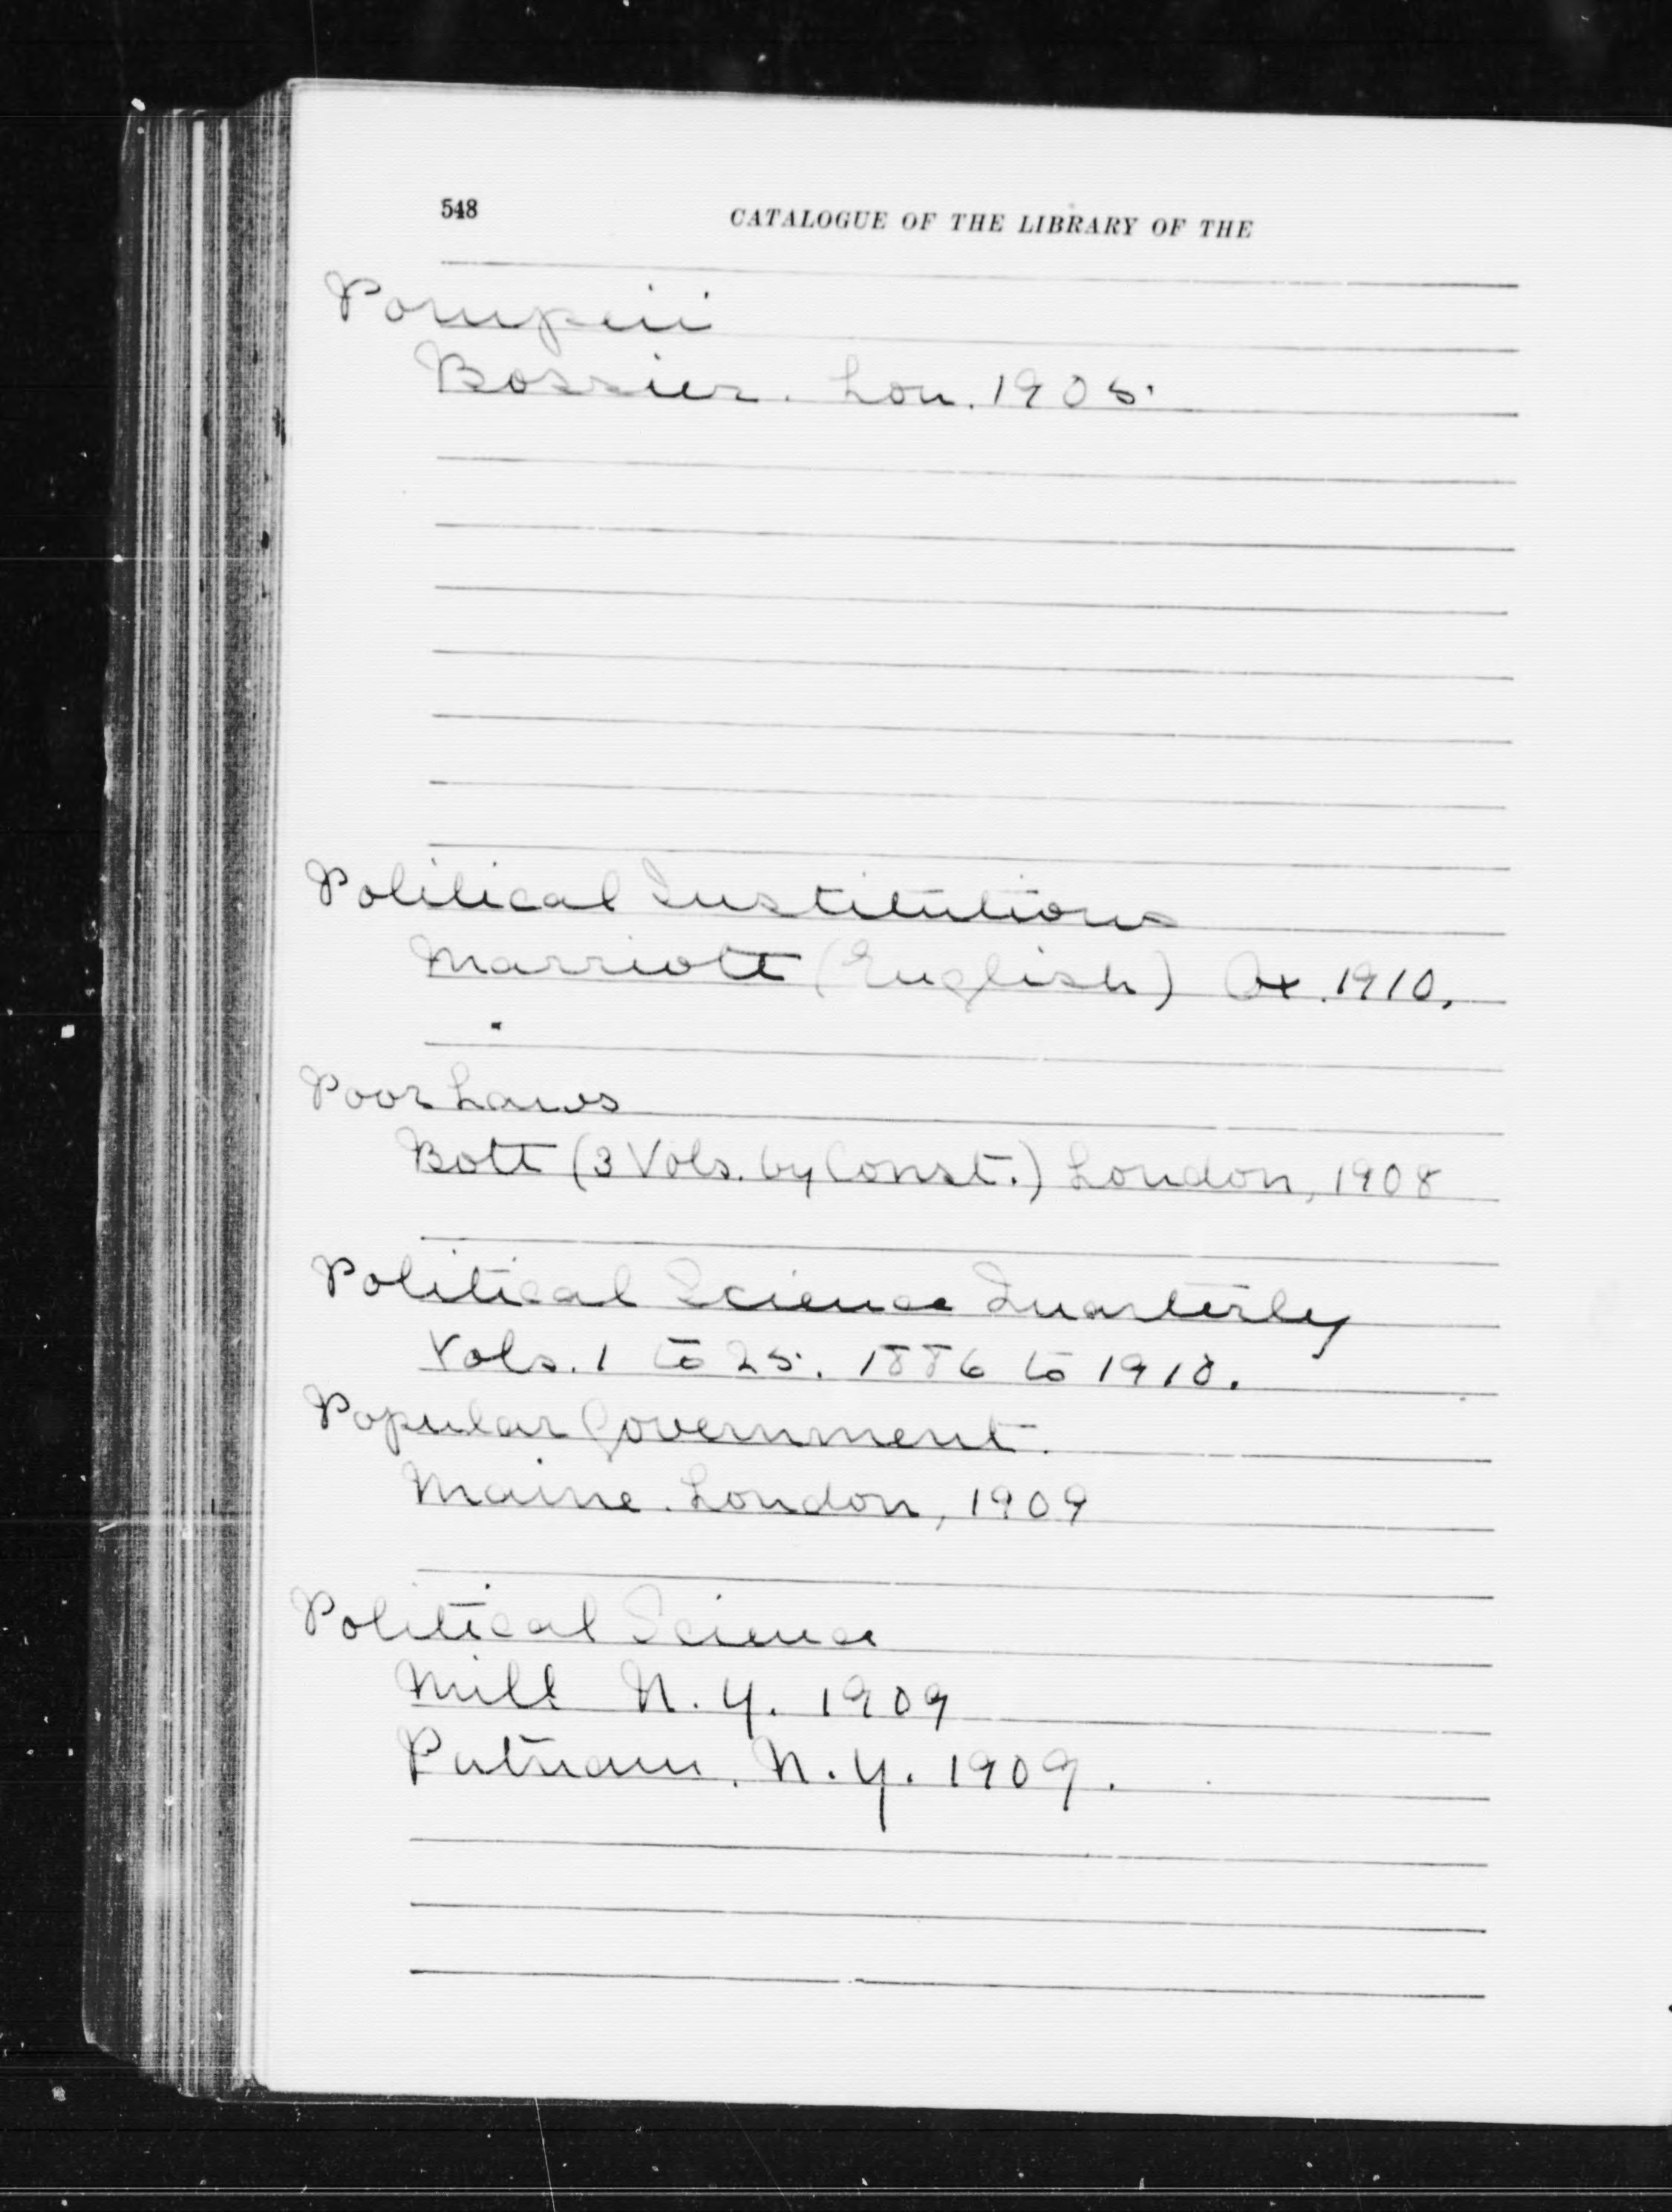 548
CATALOGUE OF THE LIBRARY OF THE
Pompeii
Bossier. Lon. 1905.
Political Institutions
Marriott (English) Ox. 1910.
Poor Laws
Bott (3 Vols. by Const.) London, 1908
Political Science Quarterly
Vols. 1 to 25. 1886 to 1910.
Popular Government.
Maine. London, 1909
Political Science
Mill N.Y. 1909
Putnam. N.Y. 1909.